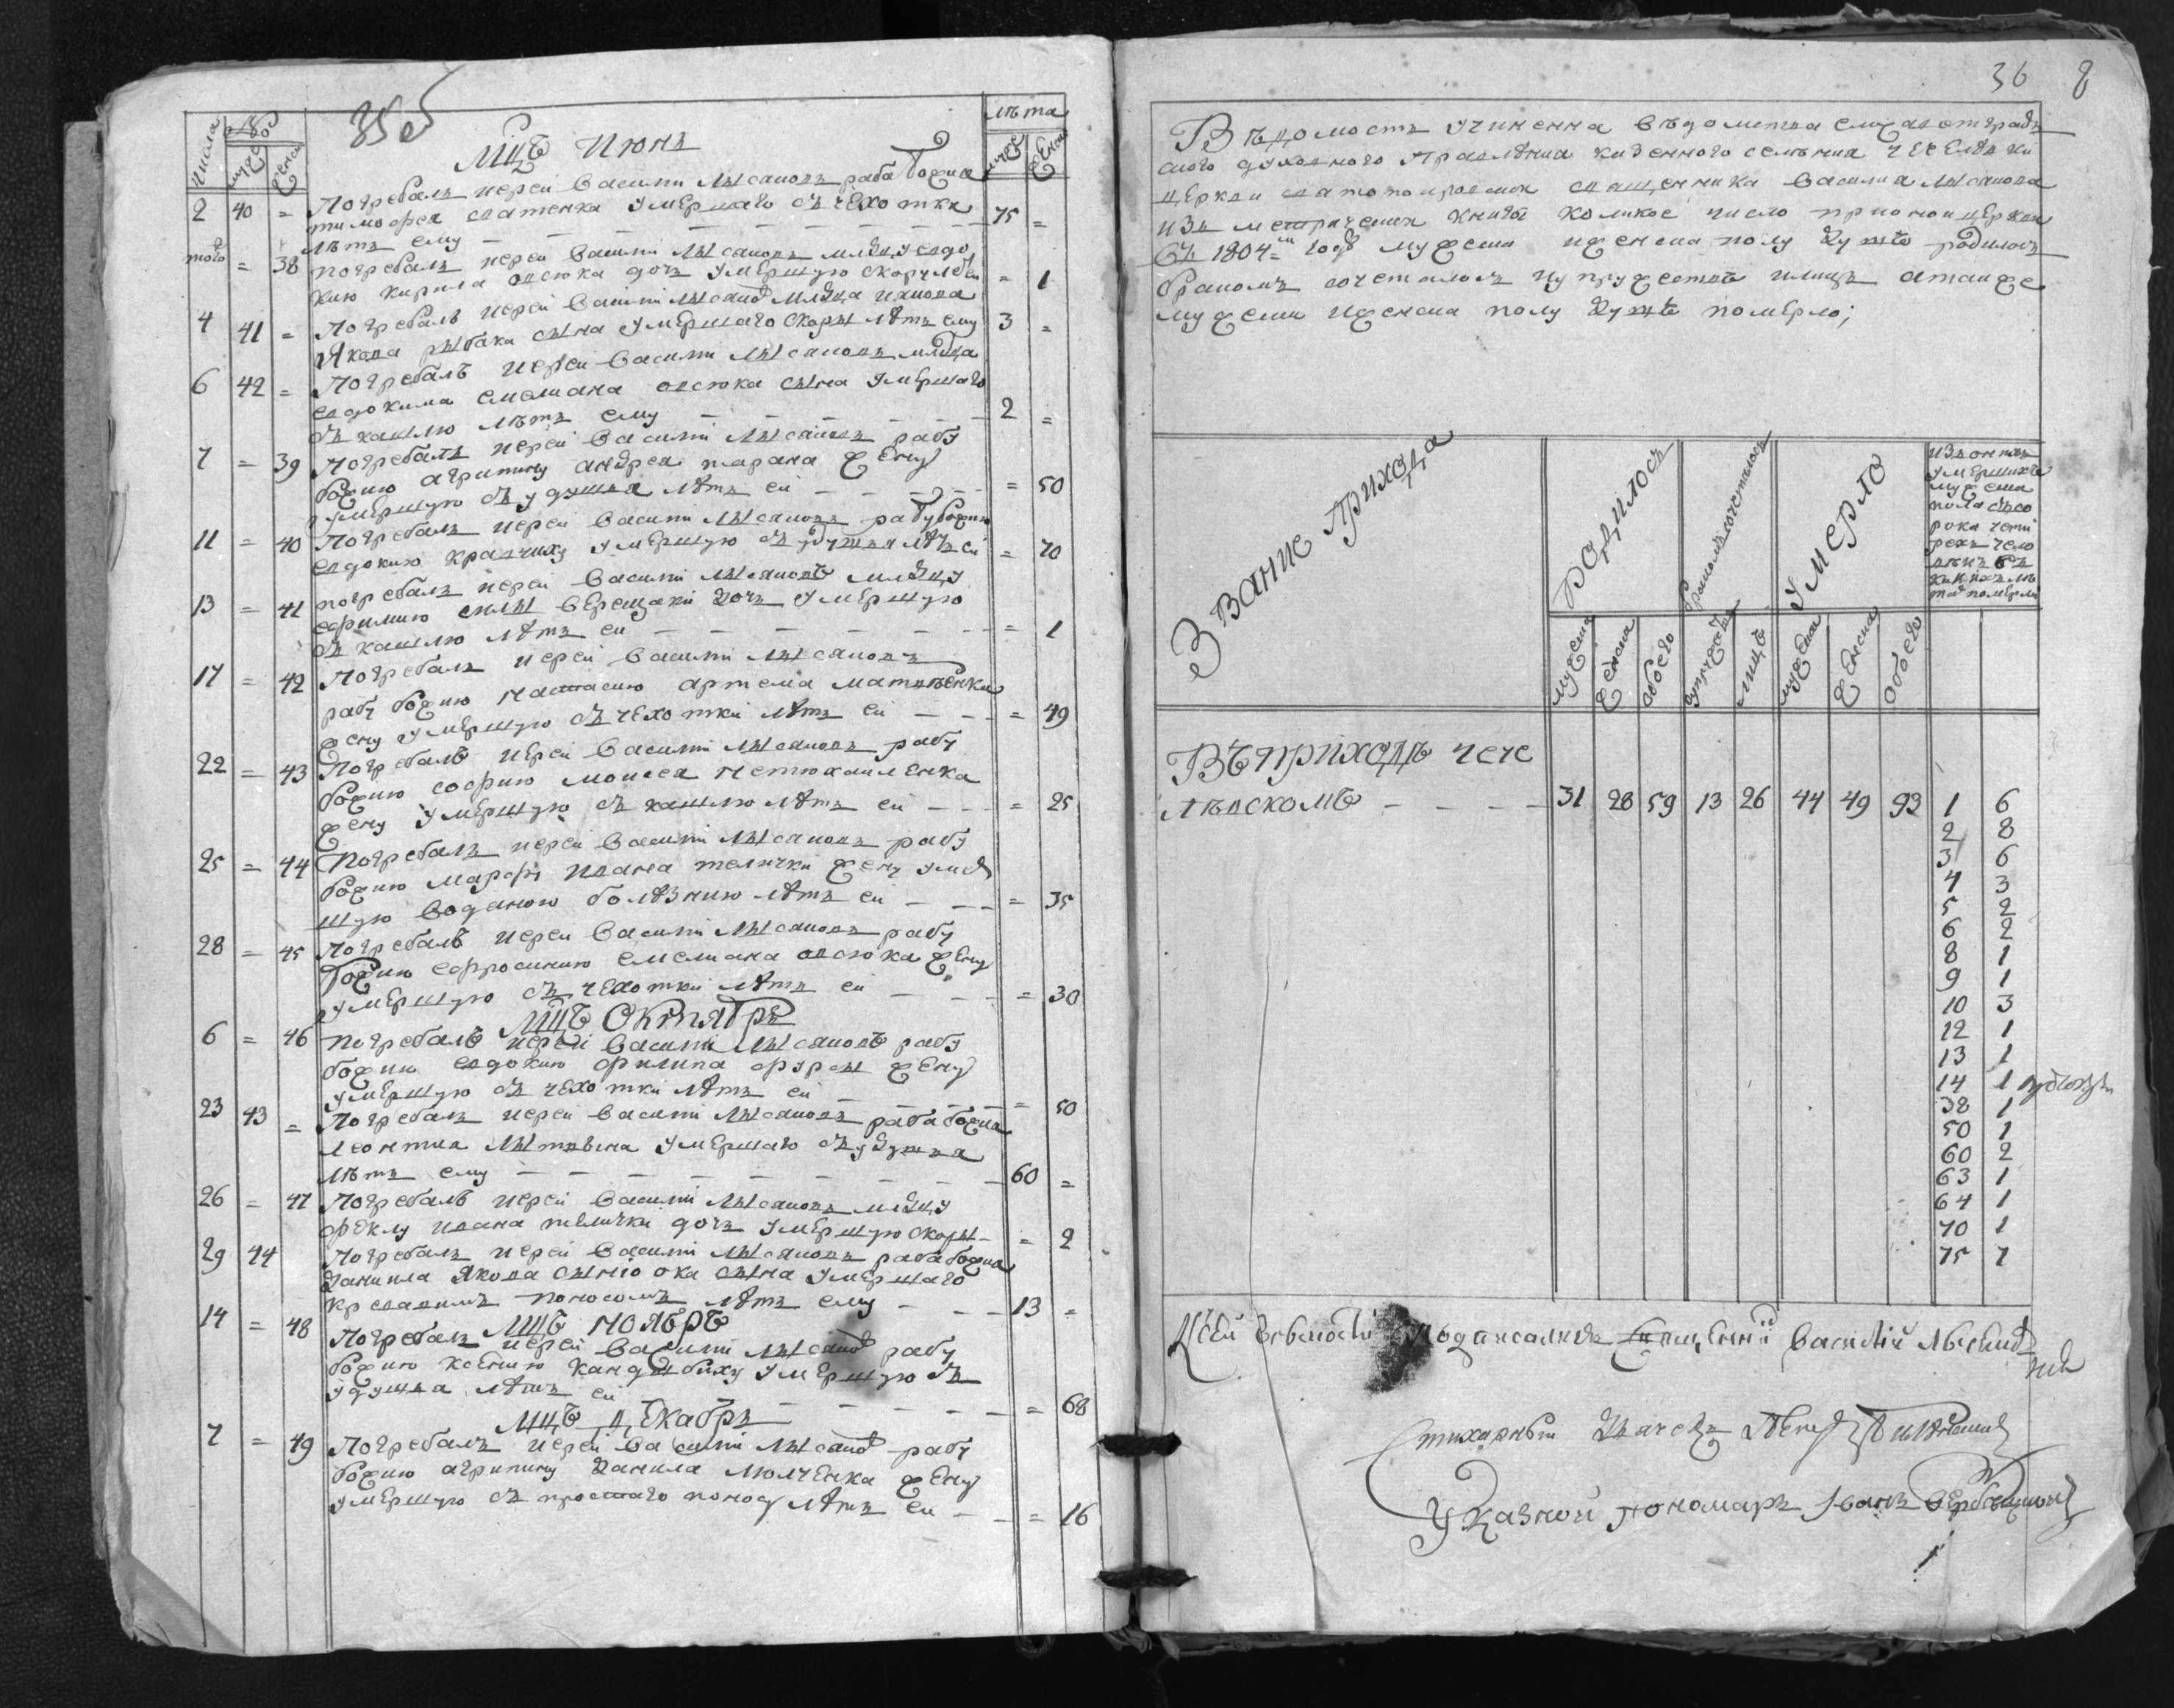 числа
муже
женск
лѣта
муже
женск
35 об
Мцъ Июнь
2 40 = Погребалъ иерей Василий Лысановъ раба божия
тимофея сватенка умершаго съ чехотки
лѣтъ ему — 75 =
того = 38 погребалъ иерей Василий Лысановъ млдцу евдо
кию кирила овсюка дочь умершую скорчлѣи = 1
4 41 = Погребалъ иерей Василий Лысанов млдца иянова
Якова рыбака сына умершаго скоры лѣтъ ему 3 =
6 42 = Погребалъ иерей Василий Лысановъ млдца
евдокима емелиана овсюка сына умершаго
съ кашлю лѣтъ ему — 2 =
7 = 39 Погребалъ иерей Василий Лысановъ рабу
божию агрипину андрея тарана жену
умершую съ удушья лѣтъ ей — = 50
11 = 40 Погребалъ иерей Василий Лысановъ рабу божию
евдокию кравчиху умершую съ удушья лѣтъ ей = 70
13 = 41 погребалъ иерей Василий Лысановъ млдцу
ефимию силы верещаки дочь умершую
съ кашлю лѣтъ ей — = 1
17 = 42 Погребалъ иерей Василий Лысановъ
рабу божию настасию артема матвѣенка
жену умершую съ чехотки лѣтъ ей — = 49
22 = 43 Погребалъ иерей Василий Лысановъ рабу
божию софию моисея нетюхаиленка
жену умершую съ кашлю лѣтъ ей — = 25
25 = 44 Погребалъ иерей Василий Лысановъ рабу
божию марфу ивана телички жену умер
шую воданою болѣзнию лѣтъ ей — = 35
28 = 45 Погребалъ иерей Василий Лысановъ рабу
божию ефросинию емелиана овсюка жену
умершую съ чехотки лѣтъ ей — = 30
Мцъ Октябрь
6 = 46 Погребалъ иерей Василий Лысановъ рабу
божию евдокию филипа фуры жену
умершую съ чехотки лѣтъ ей — = 50
23 43 = Погребалъ иерей Василий Лысановъ раба божия
леонтия Литвина умершаго съ удушья
лѣтъ ему — 60 =
26 = 47 Погребалъ иерей Василий Лысановъ млдцу
феклу ивана телички дочь умершую скоры = 2
29 44 Погребалъ иерей Василий Лысановъ раба божия
данила Якова сынюока сына умершаго
кревавимъ поносомъ лѣтъ ему — 13 =
Мцъ Ноябрь
14 = 48 Погребалъ иерей Василий Лысанов рабу
божию ксению кандыбиху умершую съ
удушья лѣтъ ей — = 68
Мцъ Декабрь
7 = 49 Погребалъ иерей Василий Лысанов рабу
божию агрипину данила молченка жену
умершую съ простаго поносу лѣтъ ей — = 16
36 8
Вѣдомость учиненна вѣдомства
скаго духовного правления казенного селѣния
церкви священника Василия Лысанова
изъ метрическия книги коликое число при оной церкви
въ 1804м годѣ мужеска и женска полу душъ родилось
бракомъ сочеталось супружествъ и лицъ атакже
мужеска и женска полу душъ померло;
Звание прихода
родилось
бракомъ сочеталось
умерло
изъ онихъ
умершихъ
мужеска
пола сѣсо
рока чети
рехъ чело
вѣкъ въ
какихъ лѣ
тахъ померли
мужеска
женска
обоего
супружествъ
лицъ
мужеска
женска
обоего
Въ приходѣ чече
лѣвскомъ — 31 28 59 13 26 44 49 93 1 6
2 8
3 6
4 3
5 2
6 2
8 1
9 1
10 3
12 1
13 1
14 1
38 1
50 1
60 2
63 1
64 1
70 1
75 1
Ксей вѣдмости подписался священникъ Василий Лысанов
Стихарный дячекъ
Указной пономаръ Іоанъ